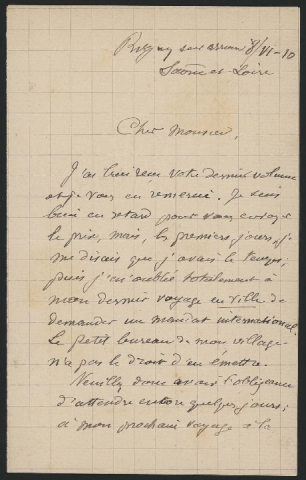 Rigny sur arroux 8/VI-10
Saône et Loire
Cher Monsieur,
J'ai bien reçu votre dernier volume
et je vous en remercie. Je suis
bien en retard pour vous envoyer
le prix, mais, les premiers jours, je
me disais que j'avais le temps;
puis j'ai oublié totalement à
mon dernier voyage en ville de
demander un mandat international.
Le petit bureau de mon village
n'a pas le droit d'en émettre.
Veuillez donc avoir l'obligeance
d'attendre encore quelques jours;
à mon prochain voyage à la